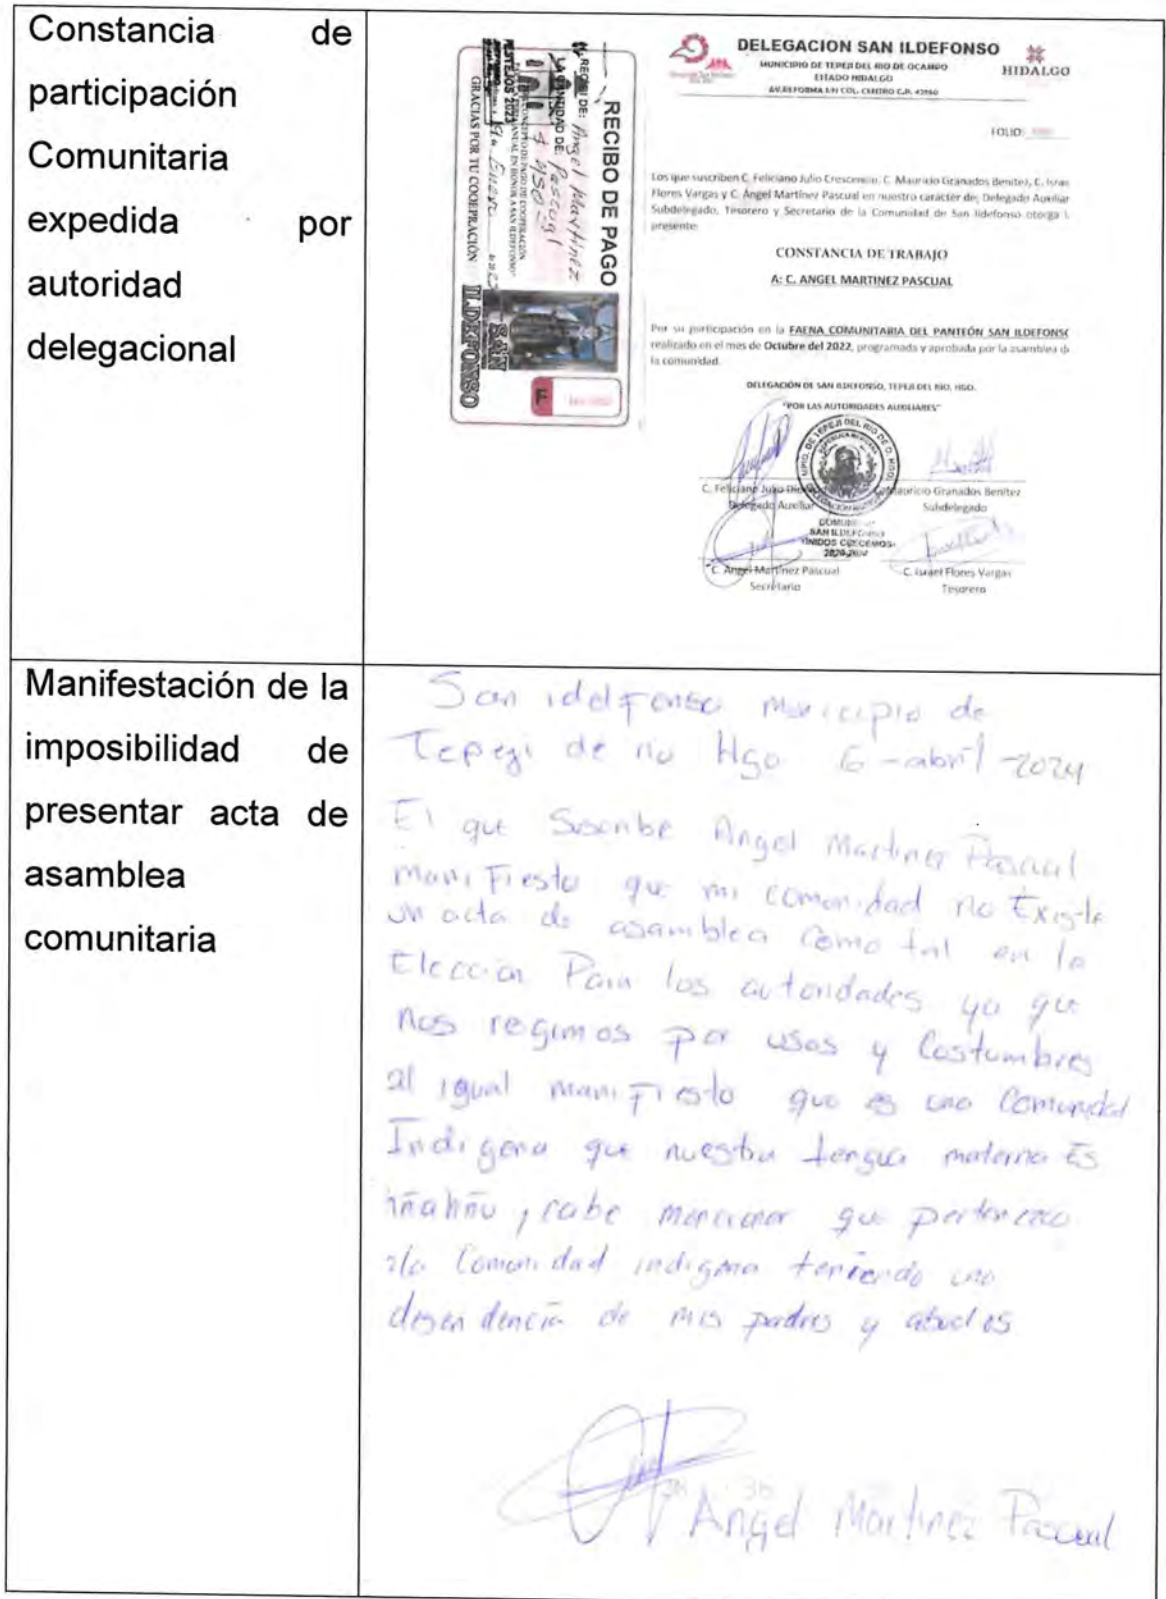 Constancia de
participación
Comunitaria
expedida por
autoridad
delegacional
RECIBO DE PAGO
RECIBI DE: Angel Martinez
LA CANTIDAD DE: Pascual
$ 450
FESTEJOS 2023
GRACIAS POR TU COOEPERACIÓN
SAN
ILDEFONSO
DELEGACION SAN ILDEFONSO
MUNICIPIO DE TEPEJI DEL RIO DE OCAMPO
ESTADO HIDALGO
AV.REFORMA S/N COL. CENTRO C.P. 42860
HIDALGO
FOLIO:
Los que suscriben C. Feliciano Julio Crescencio, C. Mauricio Granados Benitez, C. Israe
Flores Vargas y C. Ángel Martínez Pascual en nuestro carácter de; Delegado Auxiliar
Subdelegado, Tesorero y Secretario de la Comunidad de San Ildefonso otorga l
presente:
CONSTANCIA DE TRABAJO
A: C. ANGEL MARTINEZ PASCUAL
Por su participación en la FAENA COMUNITARIA DEL PANTEÓN SAN ILDEFONSO
realizado en el mes de Octubre del 2022, programada y aprobada por la asamblea d
la comunidad.
DELEGACIÓN DE SAN ILDEFONSO, TEPEJI DEL RIO, HGO.
"POR LAS AUTORIDADES AUXILIARES"
C. Feliciano Julio
Mauricio Granados Benitez
Delegado Auxiliar
Subdelegado
SAN ILDEFONSO
UNIDOS CRECEMOS
C. Angel Martinez Pascual
C. Israel Flores Vargas
Secretario
Tesorero
Manifestación de la
imposibilidad de
presentar acta de
asamblea
comunitaria
San idelfonso municipio de
Tepeji de rio Hgo 6-abril-2024
El que Suscribe Angel Martinez Pascual
maniFiesto que mi comunidad no Existe
un acta de asamblea Como tal en la
Eleccion Para las autoridades ya que
nos regimos por usos y Costumbres
al igual maniFiesto que es una Comunidad
Indigena que nuestra lengua materna Es
ñahñu, cabe mencionar que pertenezco
a la Comunidad indigena teniendo una
desendencia de mis padres y abuelos
Angel Martinez Pascual